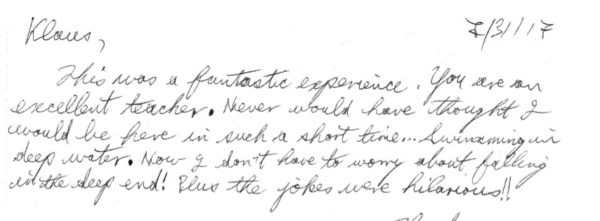 Klaus,
7/31/17
This was a fantastic experience. You are an
excellent teacher. Never would have thought I
would be here in such a short time... Swimming in
deep water. Now I don't have to worry about falling
in the deep end! Plus the jokes were hilarious!!